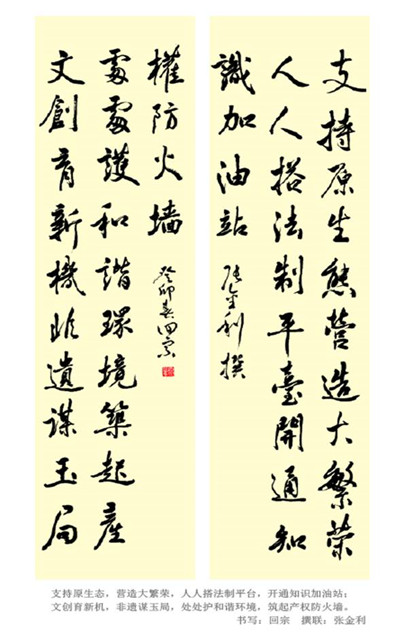 支持原生態營造大繁荣
人人搭法制平臺開通知
識加油站
张金利撰
文創育新機非遺謀玉局
處處護和諧環境築起產
權防火墙
癸卯春回宗
支持原生态，营造大繁荣，人人搭法制平台，开通知识加油站；
文创育新机，非遗谋玉局，处处护和谐环境，筑起产权防火墙。
书写：回宗　撰联：张金利